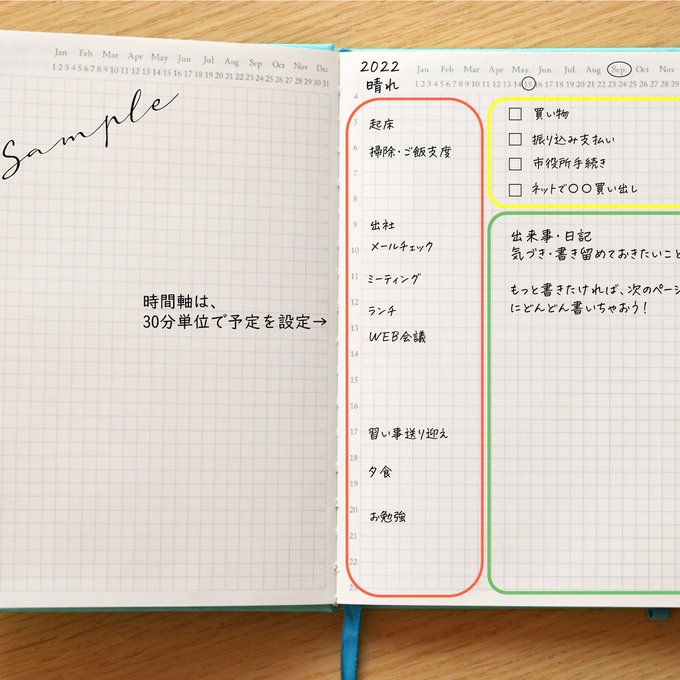 Jan Feb Mar Apr May Jun Jul Aug Sep Oct Nov Dec
1 2 3 4 5 6 7 8 9 10 11 12 13 14 15 16 17 18 19 20 21 22 23 24 25 26 27 28 29 30 31
Sample
時間軸は、
30分単位で予定を設定→
2022
晴れ
Jan Feb Mar Apr May Jun Jul Aug Sep Oct Nov
1 2 3 4 5 6 7 8 9 10 11 12 13 14 15 16 17 18 19 20 21 22 23 24 25 26 27 28
4
5 起床
6 掃除・ご飯支度
7
8
9 出社
10 メールチェック
11 ミーティング
12 ランチ
13 WEB会議
14
15
16
17 習い事送り迎え
18 夕食
19
20 お勉強
21
22
23
買い物
振り込み支払い
市役所手続き
ネットで〇〇買い出し
出来事・日記
気づき・書き留めておきたいこと
もっと書きたければ、次のページ
にどんどん書いちゃおう!